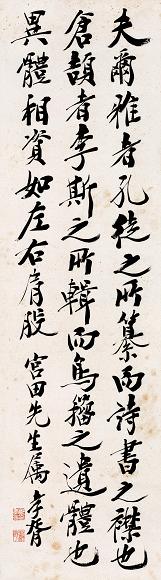 夫爾雅者孔徒之所纂而詩書之襟也
倉頡者李斯之所輯而鳥籀之遺體也
異體相資如左右肩股 宮田先生屬 李脣